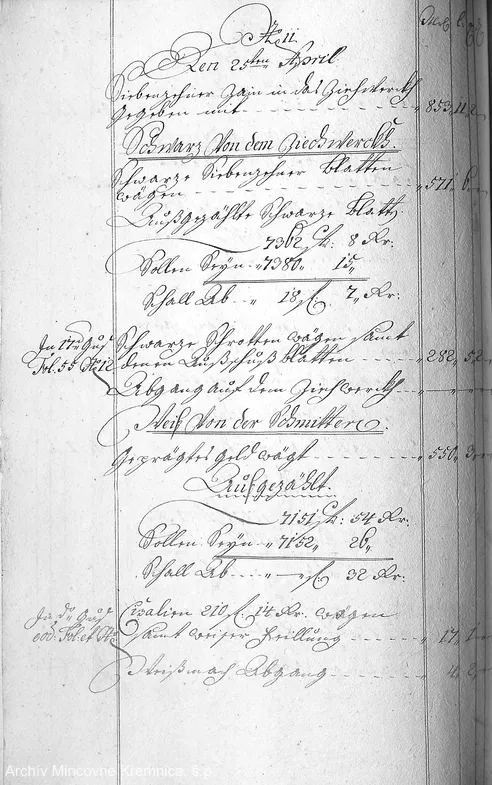 N: 11
Den 25ten April
Siebenzehner Zain in das Ziehwerckh
gegeben mit - - - 853 11
Schwarz Von dem Ziechwerckh.
Schwarze Siebenzehner Blatten
wägen - - - 571 6
Außgezählte Schwarze Blatt
7362 f: 8 Kr:
Sollen Seyn 7380 15
Schall Ab 18 f. 7 Kr:
In 17ner Guß
Fol. 55 No 12
Schwarze Schrotten wägen samt
denen Außschuß blatten - - - 282 52
Abgang auf dem Ziehwerckh - - -
Weiß Von der Schmitten
Geprägtes Geld wägt - - - 550
Aufgezählt.
7151 f: 54 Kr:
Sollen Seyn 7152 26
Schall Ab - - f. 32 Kr:
In do Guß
eod: Fol. et No
Cisalien 210 f. 14 Kr. wägen
samt weiser Feillung - - - 17
Weißmach Abgang - - - 4
Archív Mincovne Kremnica, š.p.